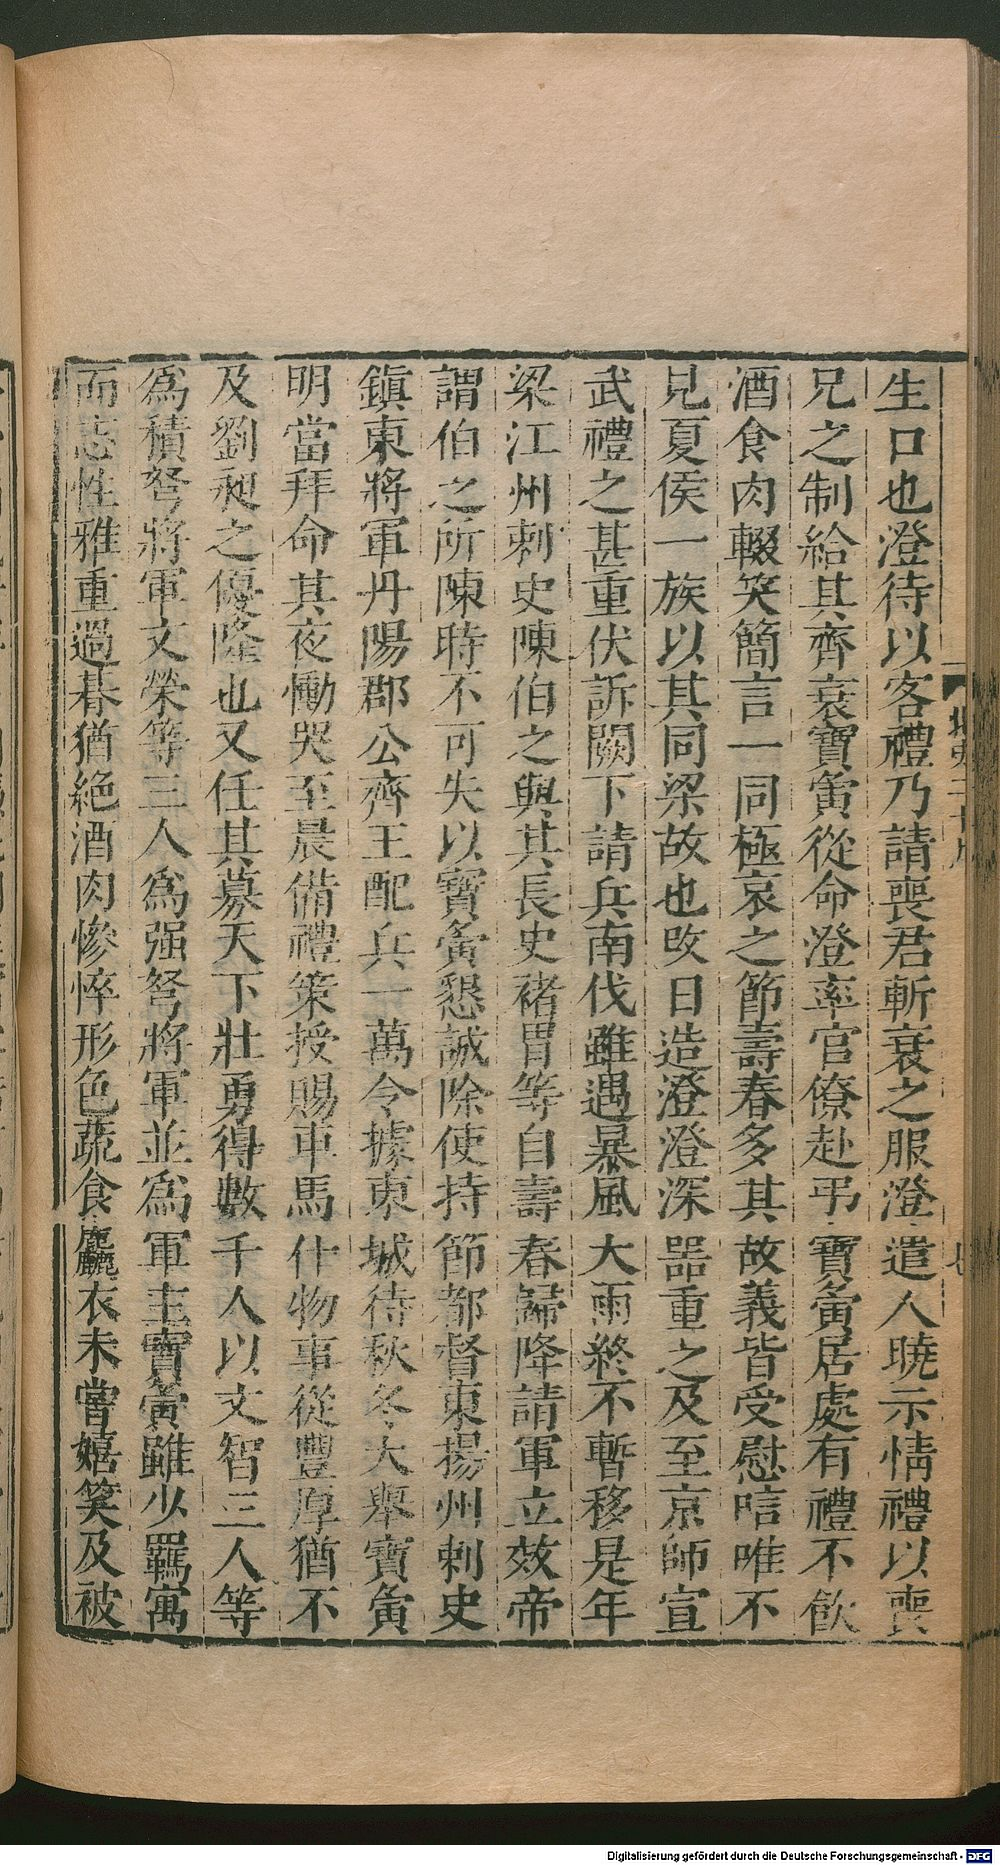 生口也澄待以客禮乃請喪君斬衰之服澄遣人曉示情禮以喪
兄之制給其齊衰寶夤從命澄率官僚赴弔寶夤居處有禮不飲
酒食肉輟笑簡言一同極哀之節壽春多其故義皆受慰唁唯不
見夏侯一族以其同梁故也改日造澄澄深器重之及至京師宣
武禮之甚重伏訴闕下請兵南伐雖遇暴風大雨終不暫移是年
梁江州刺史陳伯之與其長史褚胃等自壽春歸降請軍立效帝
謂伯之所陳時不可失以寶夤懇誠除使持節都督東揚州刺史
鎮東將軍丹陽郡公齊王配兵一萬令據東城待秋冬大舉寶夤
明當拜命其夜慟哭至晨備禮策授賜車馬什物事從豐厚猶不
及劉昶之優隆也又任其募天下壯勇得數千人以文智三人等
為積弩將軍文榮等三人為强弩將軍並為軍主寶夤雖少羈寓
而志性雅重過朞猶絶酒肉慘悴形色蔬食麤衣未嘗嬉笑及被
Digitalisierung gefördert durch die Deutsche Forschungsgemeinschaft - DFG